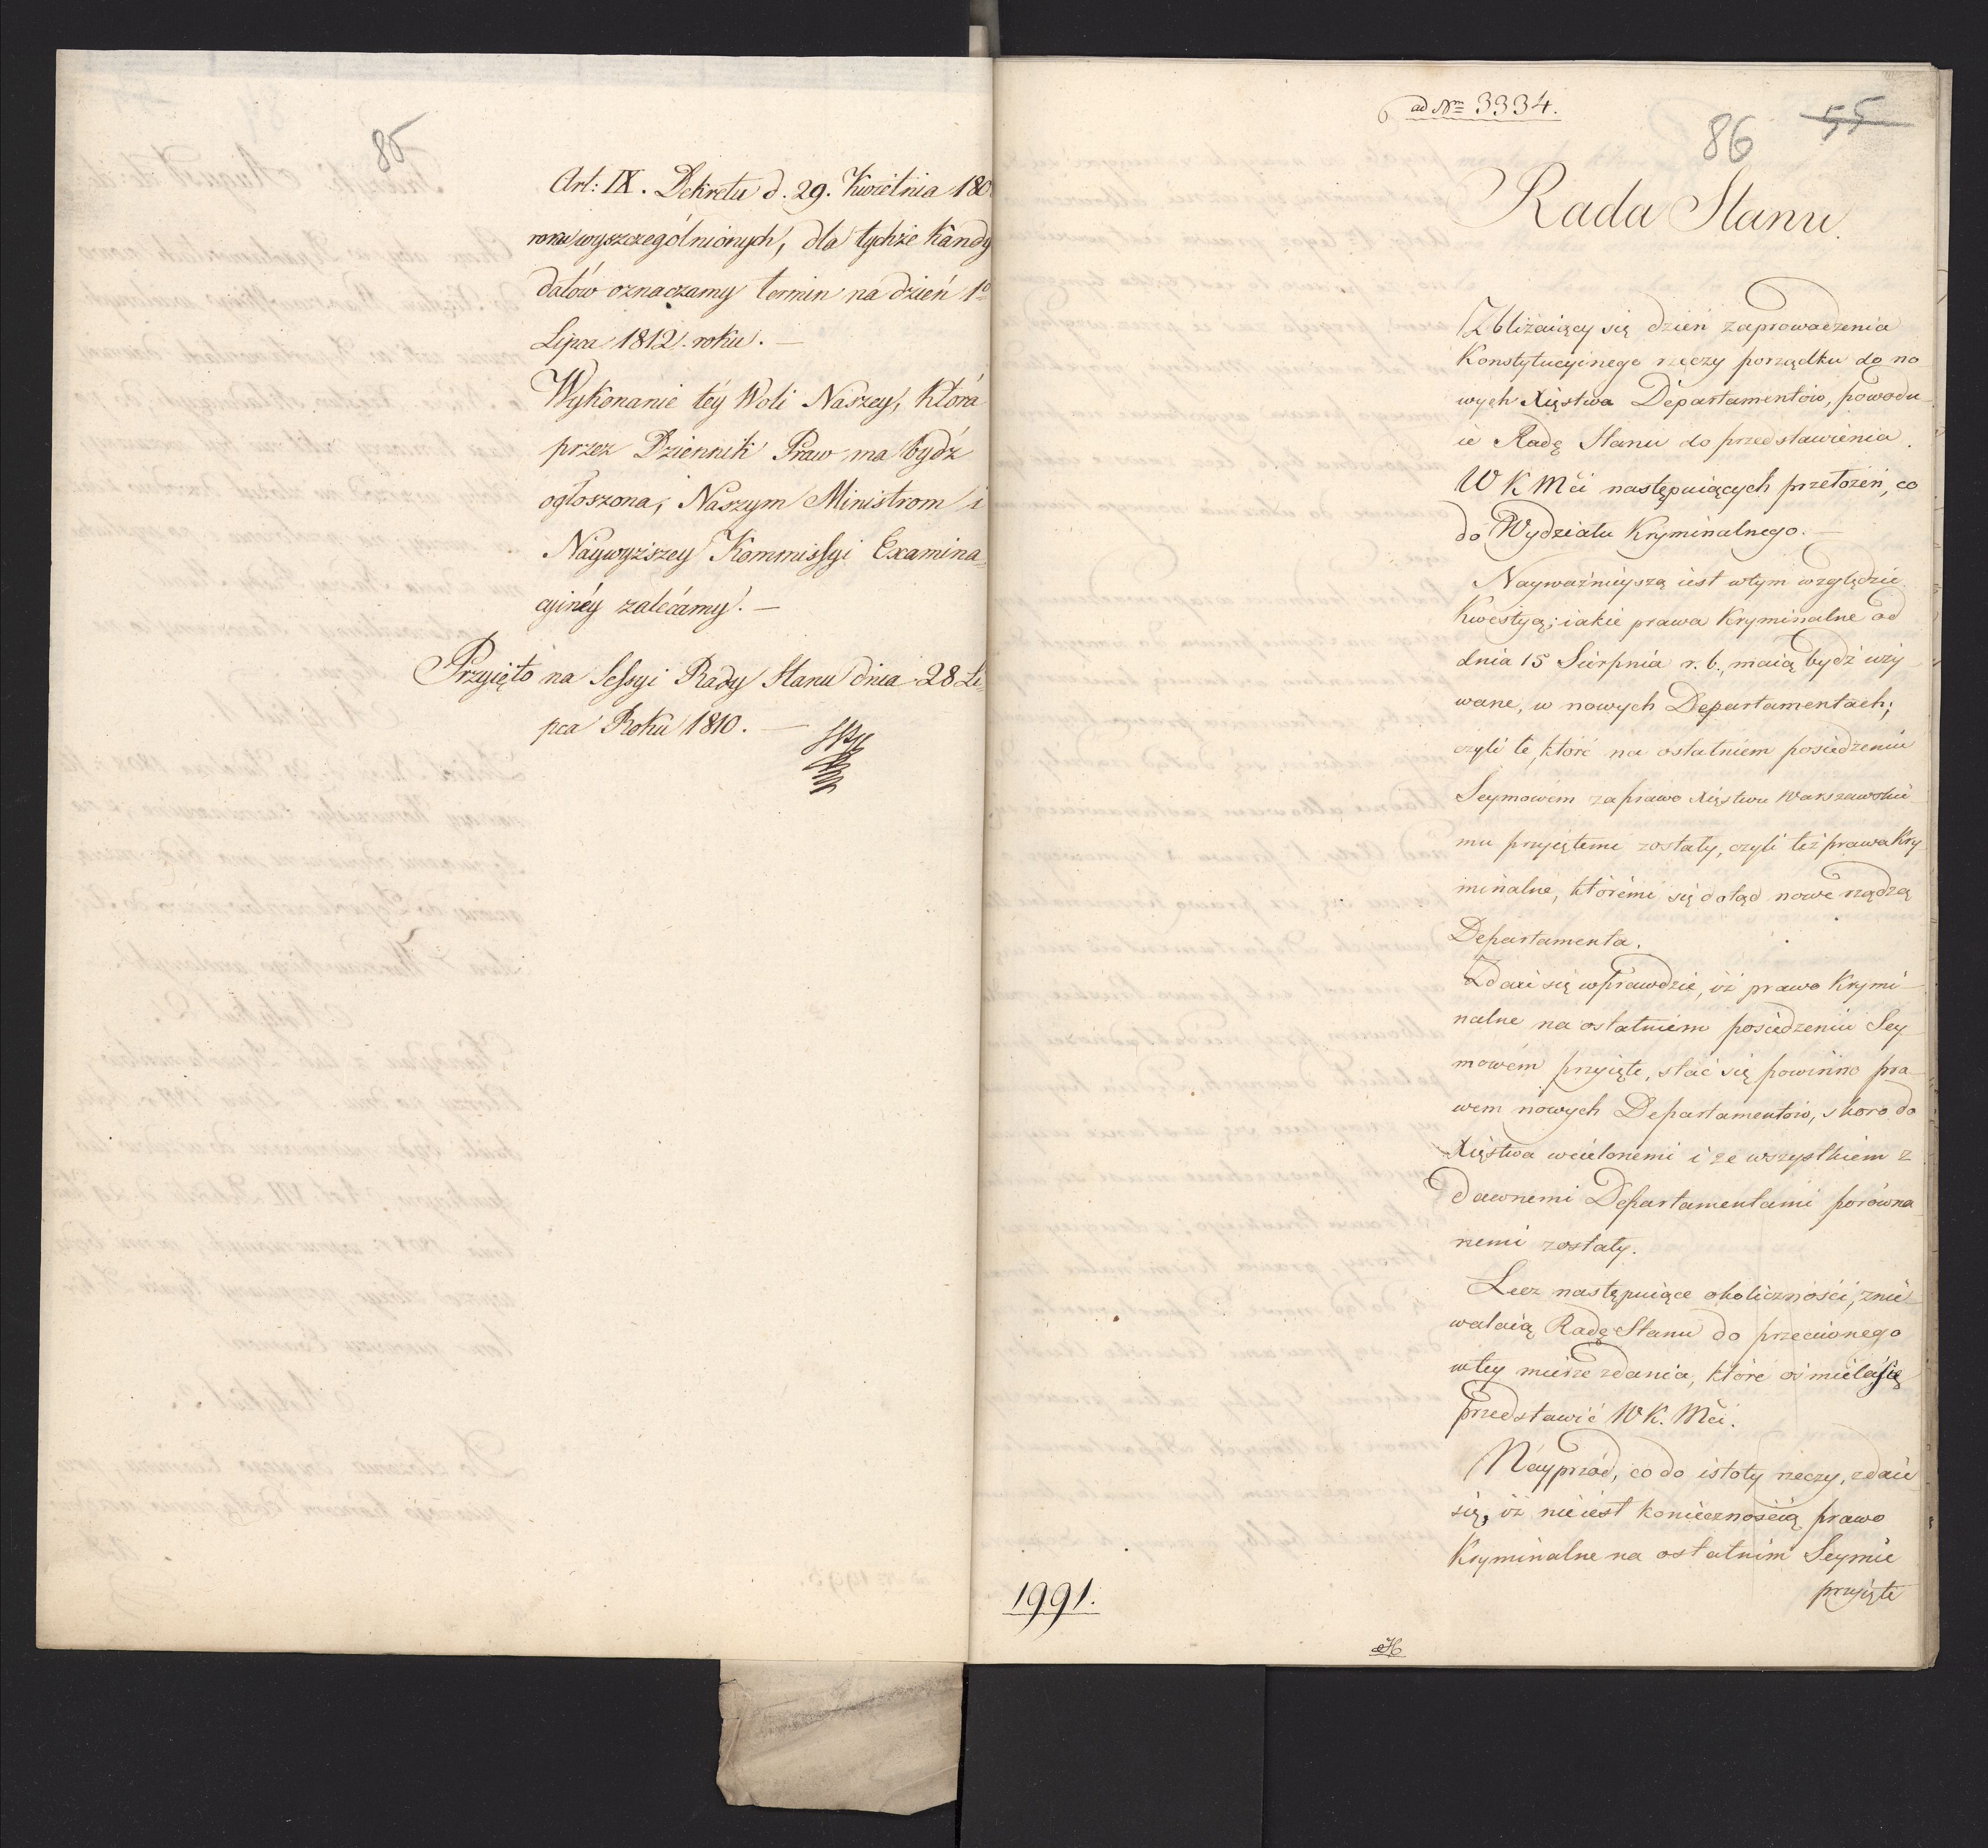 85
Art: IX. Dekretu d. 29. Kwietnia 180
roku wyszczególnionych, dla tychże Kandy
datów oznaczamy termin na dzień 1º
Lipca 1812. roku. —
Wykonanie téy Woli Naszey, która
przez Dziennik Praw ma bydź
ogłoszona, Naszym Ministrom i
Naywyższey Kommissyi Examina„
cyinéy zalécamy. —
Przyięto na Sessyi Rady Stanu dnia 28 Li„
pca Roku 1810. —
ad Nrm 3334.
86 55
Rada Stanu.
Zbliżaiący się dzień zaprowadzenia
Konstytucyinego rzeczy porządku do no
wych Xięstwa Departamentów, powodu
ie Radę Stanu do przedstawienia
W K Mci następuiących przełożeń, co
do Wydziału Kryminalnego. —
Nayważnieyszą iest w tym względzie
Kwestyą; iakie prawa Kryminalne od
dnia 15 Sierpnia r. b., maią bydź uży
wane, w nowych Departamentach;
czyli te, które na ostatniem posiedzeniu
Seymowem za prawo Xięstwu Warszawskie
mu przyiętemi zostały, czyli też prawa Kry
minalne, któremi się dotąd nowe rządzą
Departamenta.
Zdaie się wprawdzie, iż prawo Krymi—
nalne na ostatniem posiedzeniu Sey
mowém przyięte, stać się powinno pra
wem nowych Departamentów, skoro do
Xięstwa wcielonemi i ze wszystkiem z
dawnemi Departamentami porówna
nemi zostały.
Lecz następuiące okoliczności, znie
walaią Radę Stanu do przeciwnego
w tey mierze zdania, które ośmiela się
przedstawić W K. Mci.
Nayprzód, co do istoty rzeczy, zdaie
się, iż nie iest koniecznością prawo
Kryminalne na ostatnim Seymie
przyięte
1991.